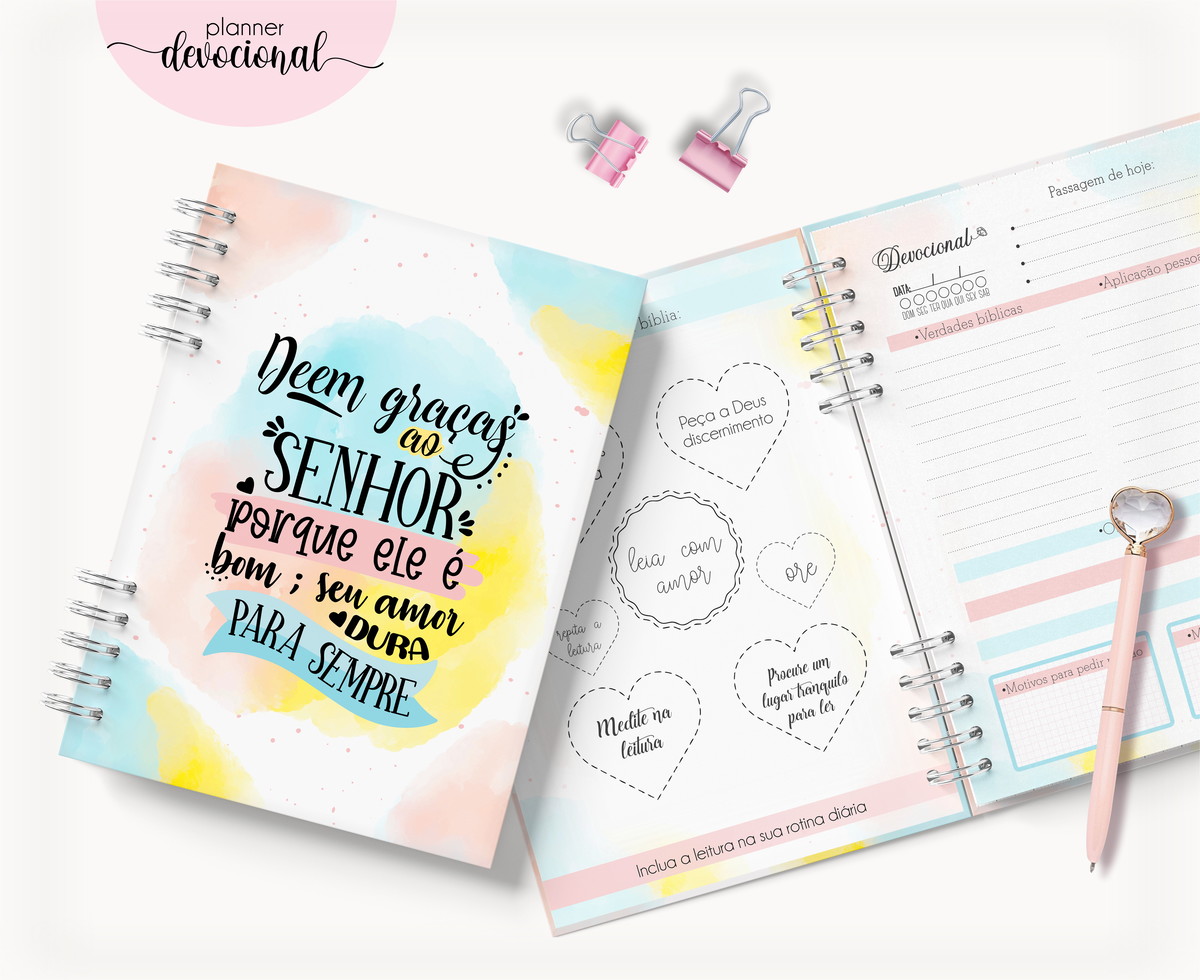 planner
devocional
Deem graças
ao
SENHOR
porque ele é
bom ; seu amor
DURA
PARA SEMPRE
bíblia:
Peça a Deus
discernimento
leia com
amor
ore
repita a
leitura
Procure um
lugar tranquilo
para ler
Medite na
leitura
Inclua a leitura na sua rotina diária
Devocional
DATA:
DOM SEG TER QUA QUI SEX SAB
Passagem de hoje:
•Verdades bíblicas
•Aplicação pessoa
•Motivos para pedir